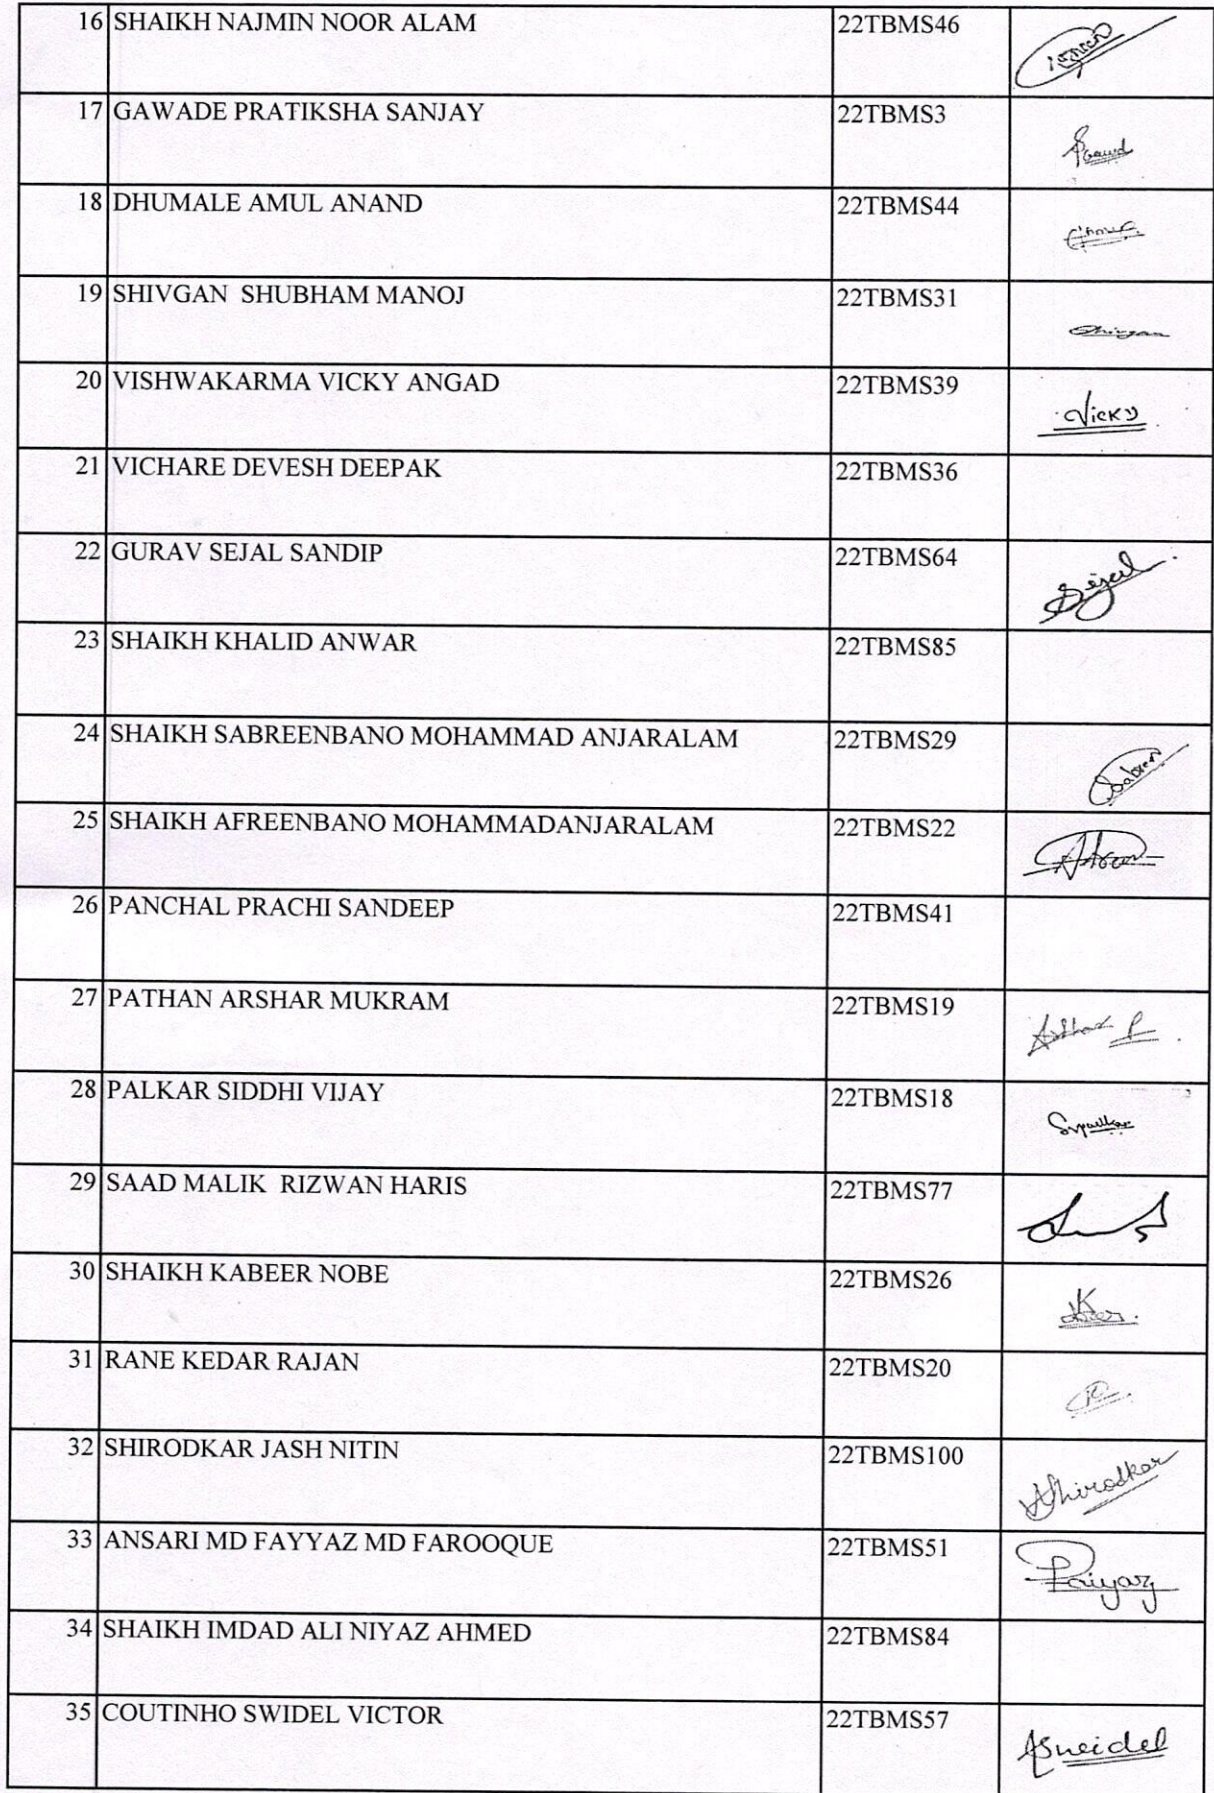 16 SHAIKH NAJMIN NOOR ALAM 22TBMS46
17 GAWADE PRATIKSHA SANJAY 22TBMS3
18 DHUMALE AMUL ANAND 22TBMS44
19 SHIVGAN SHUBHAM MANOJ 22TBMS31 Shivgan
20 VISHWAKARMA VICKY ANGAD 22TBMS39 Vicky
21 VICHARE DEVESH DEEPAK 22TBMS36
22 GURAV SEJAL SANDIP 22TBMS64 Sejal
23 SHAIKH KHALID ANWAR 22TBMS85
24 SHAIKH SABREENBANO MOHAMMAD ANJARALAM 22TBMS29
25 SHAIKH AFREENBANO MOHAMMADANJARALAM 22TBMS22
26 PANCHAL PRACHI SANDEEP 22TBMS41
27 PATHAN ARSHAR MUKRAM 22TBMS19
28 PALKAR SIDDHI VIJAY 22TBMS18
29 SAAD MALIK RIZWAN HARIS 22TBMS77
30 SHAIKH KABEER NOBE 22TBMS26
31 RANE KEDAR RAJAN 22TBMS20
32 SHIRODKAR JASH NITIN 22TBMS100 Shirodkar
33 ANSARI MD FAYYAZ MD FAROOQUE 22TBMS51 Faiyaz
34 SHAIKH IMDAD ALI NIYAZ AHMED 22TBMS84
35 COUTINHO SWIDEL VICTOR 22TBMS57